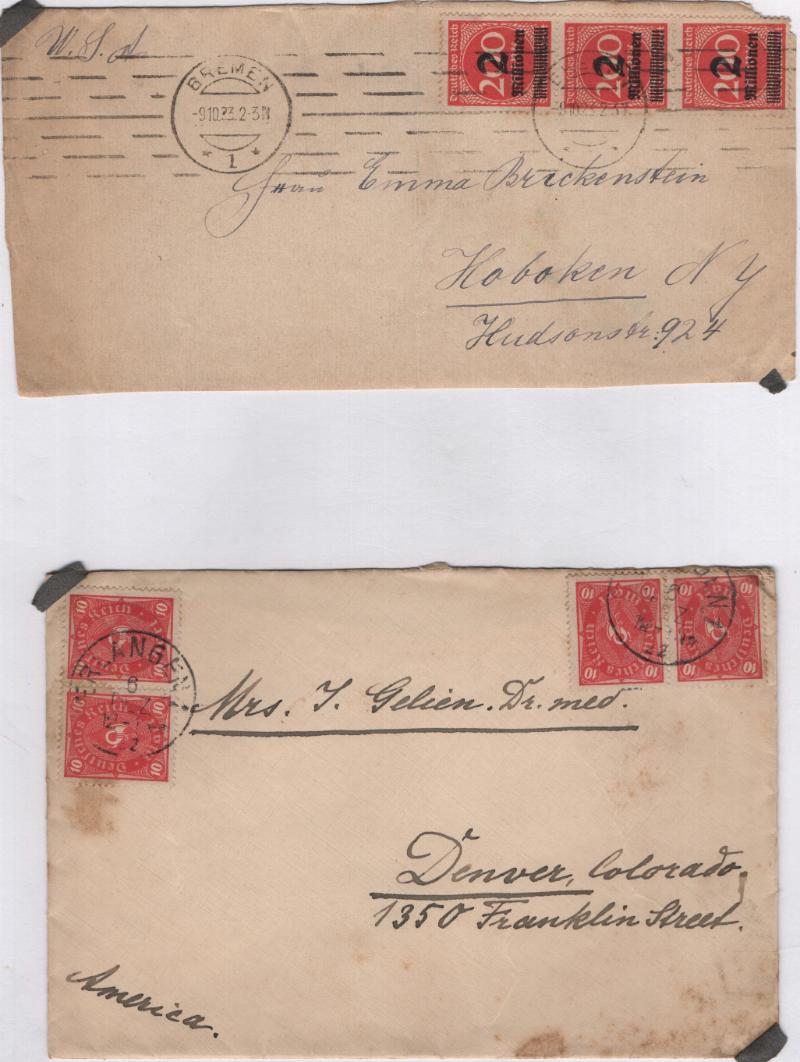 U.S.A
BREMEN
-9.10.23.2-3N
* 1 *
Deutsches Reich
200
2 Millionen
Deutsches Reich
200
2 Millionen
Deutsches Reich
200
2 Millionen
9.10.23.2-3N
Frau Emma Brickenstein
Hoboken N Y
Hudsonstr. 924
10
Deutsches Reich
10
Deutsches Reich
10
10
Deutsches Reich
10
10
Deutsches Reich
10
ERLANGEN
6
2
Mrs. I. Gelien. Dr. med.
Denver, Colorado.
1350 Franklin Street.
America.